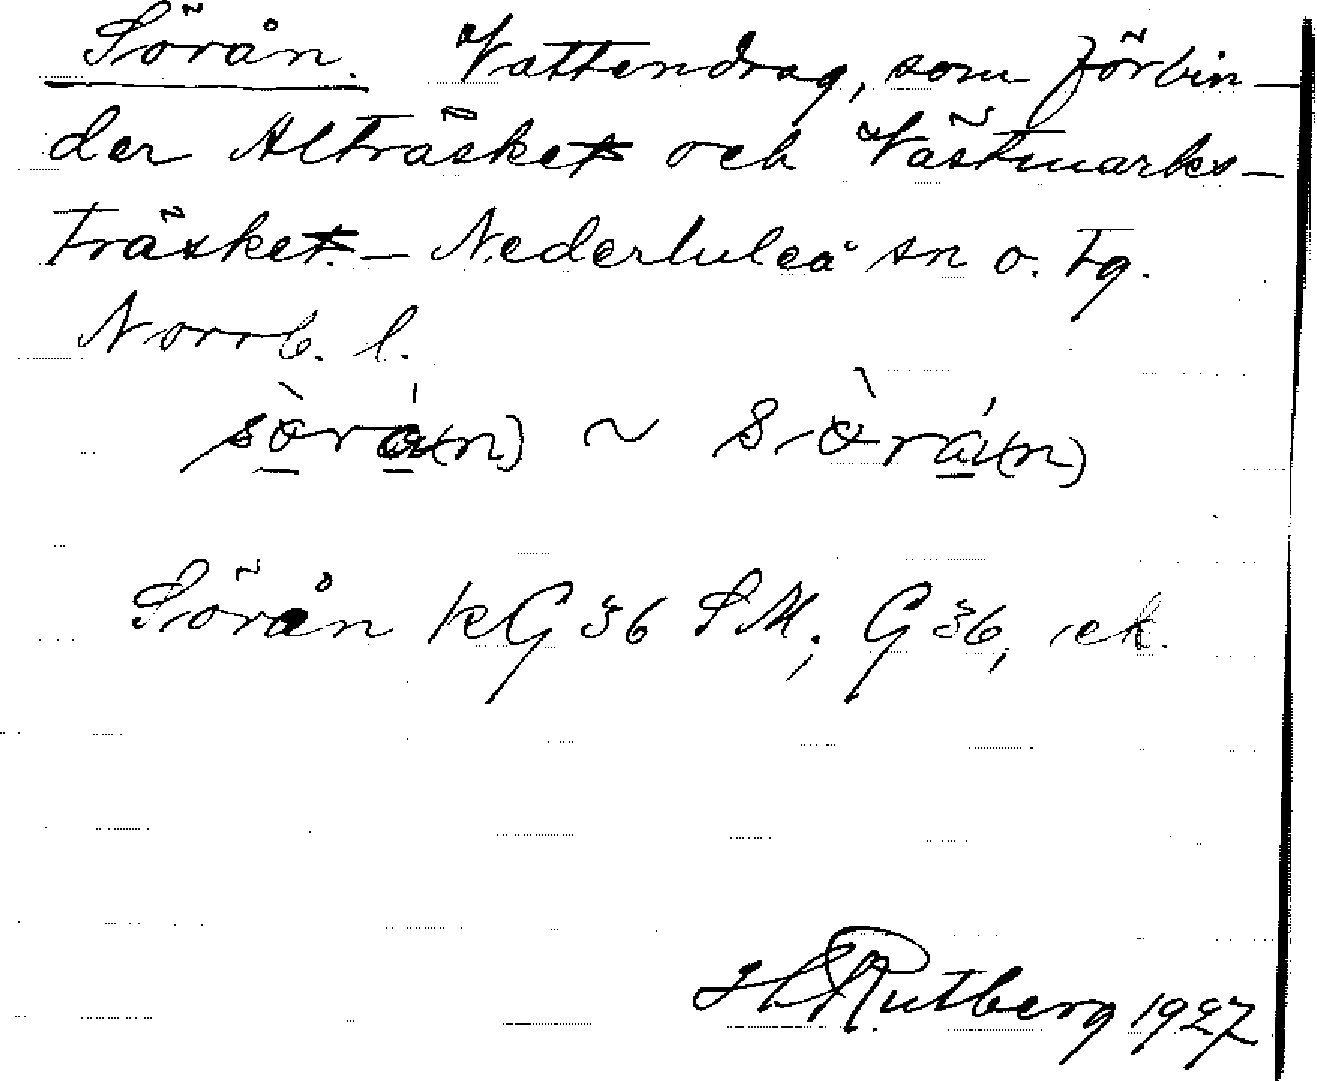 Sörån. Vattendrag, som förbin-
der Alträsket och Västmarks-
träsket. – Nederluleå sn o. tg.
Norrb. l.
Sörån kG36 SM; G36, ek.
H Rutberg 1927